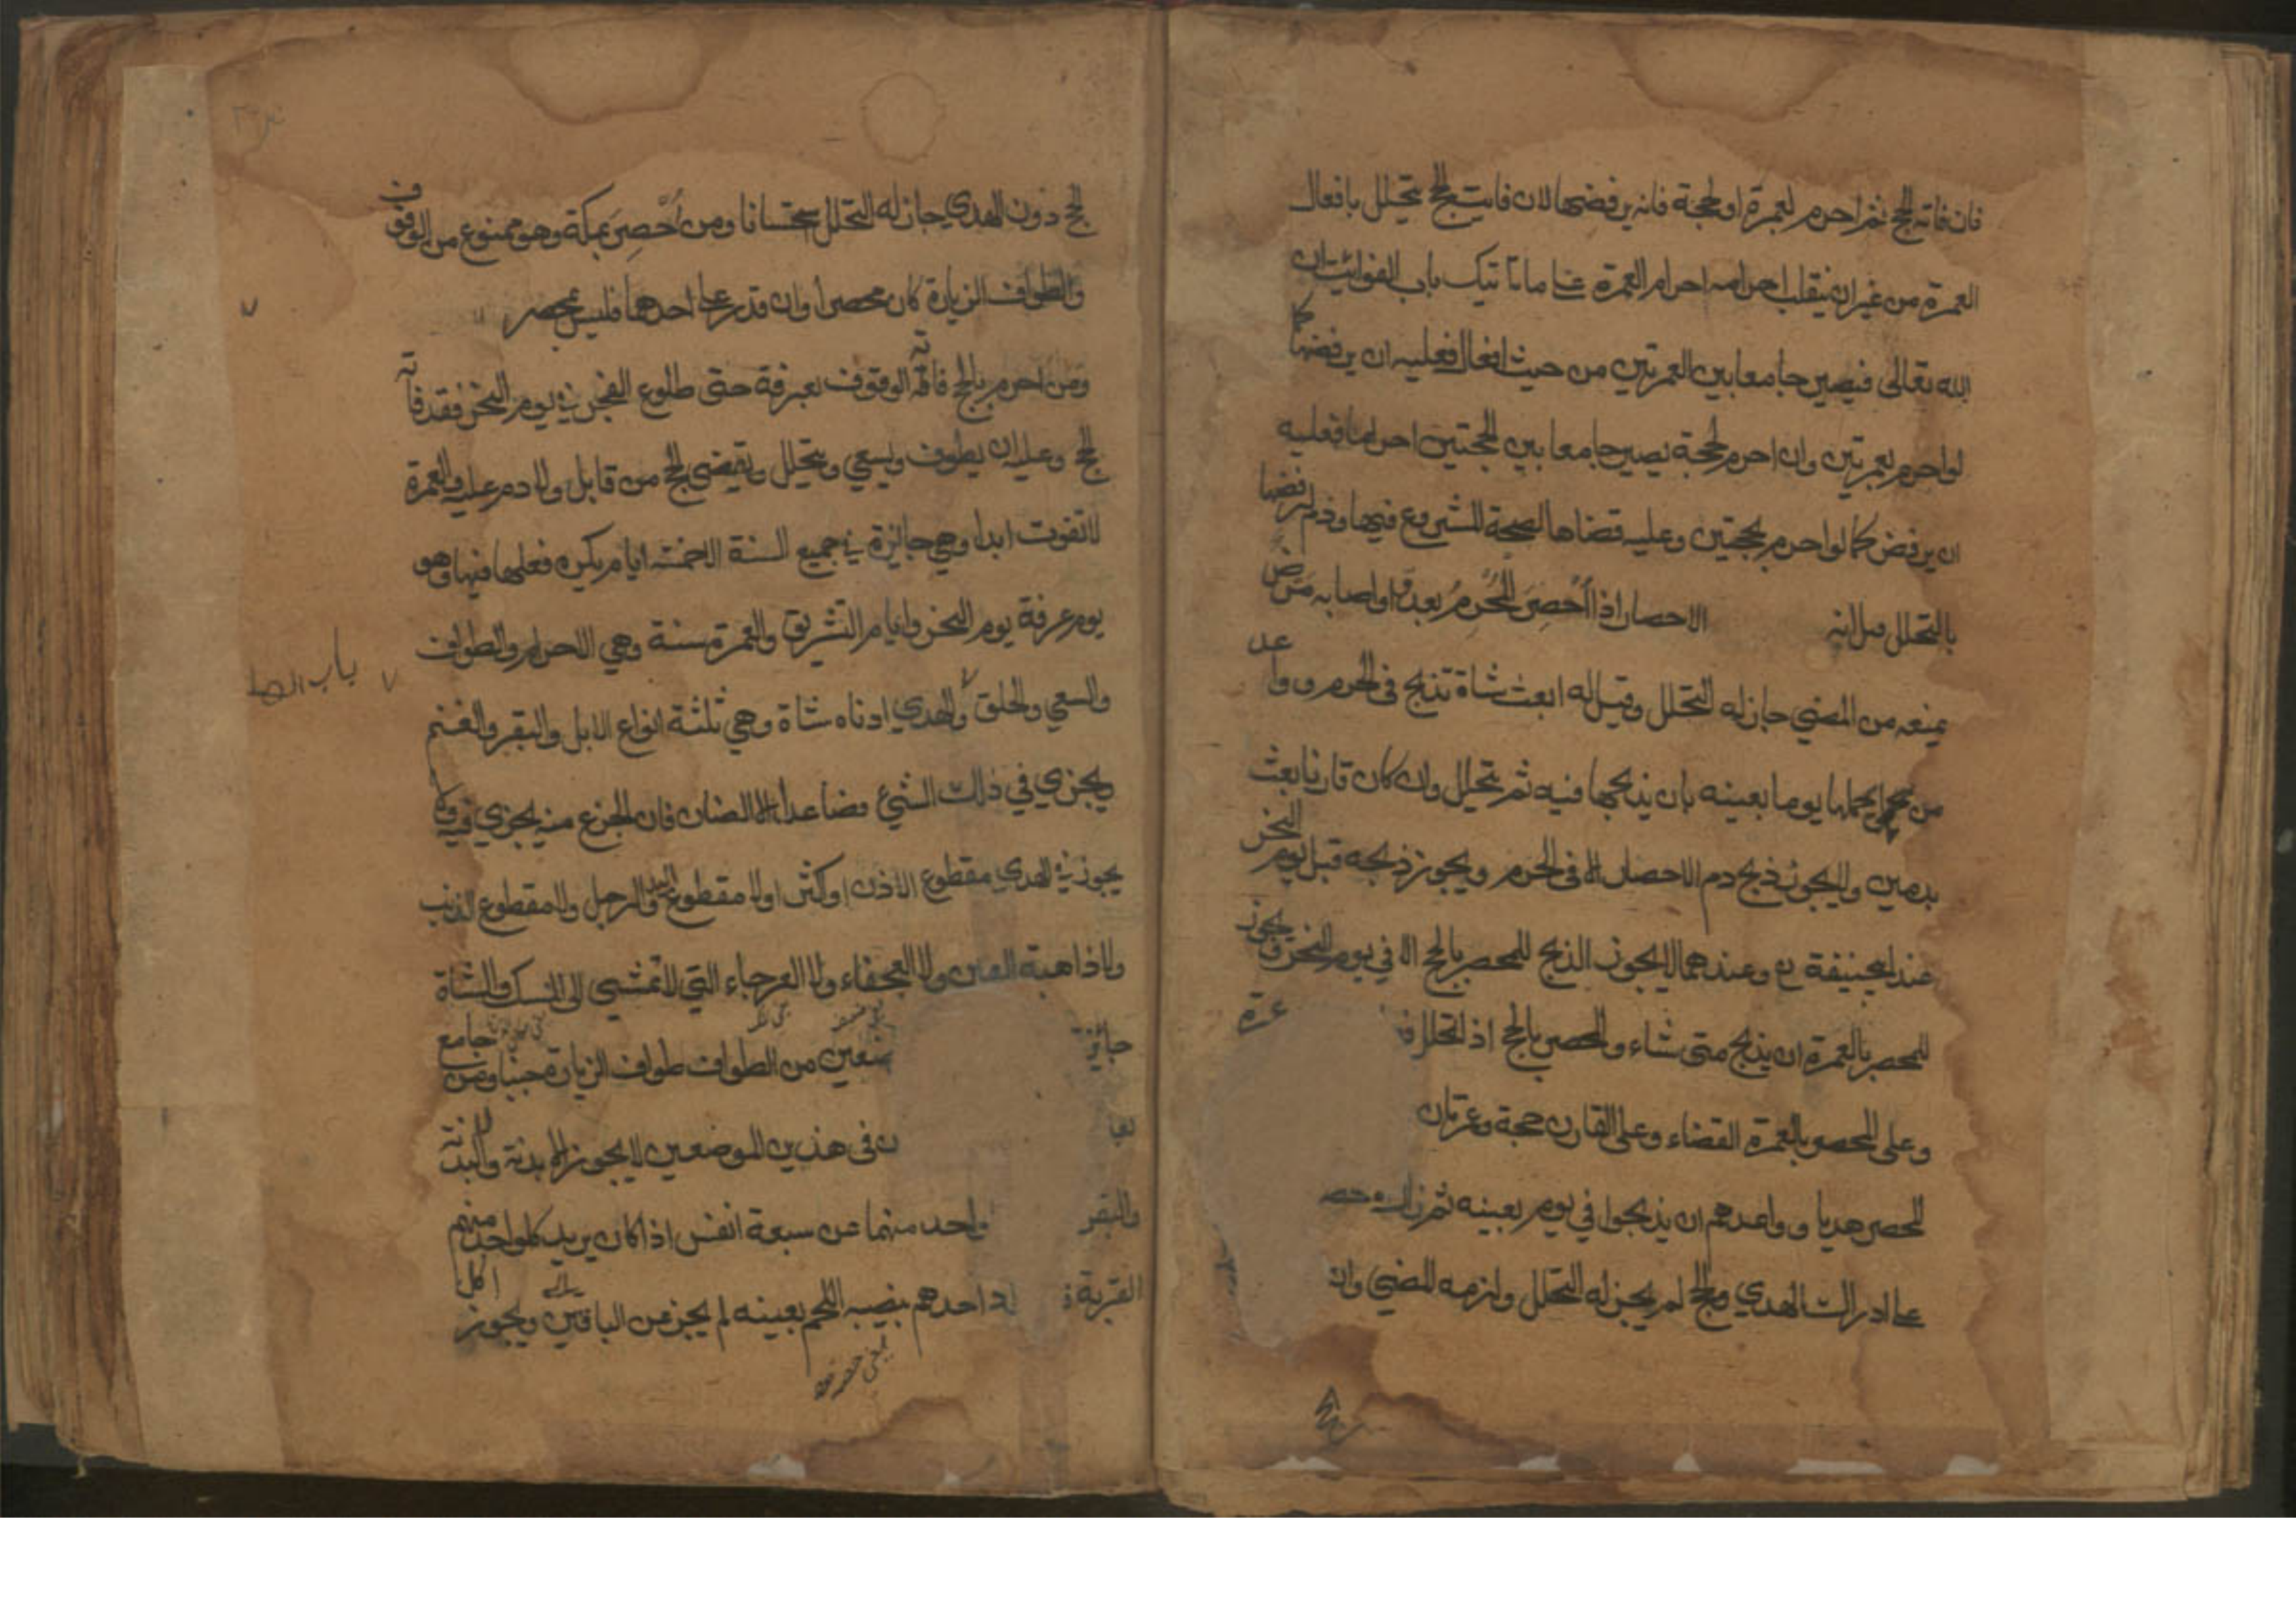 فان فاته الحج ثم احرم بعمرة او بحجة فانه يرفضها لان فايت الحج يتحلل بافعال
العمرة من غير ان ينقلب احرامه احرام العمرة باب الفوات ان
الله تعالى فيصير جامعا بين العمرتين من حيث افعال فعليه ان يرفضها كما
لو احرم بعمرتين وان احرم بحجة يصير جامعا بين الحجتين احراما فعليه
ان يرفض كما لو احرم بحجتين وعليه قضاها لصحة الشروع فيها ودم لرفضها
بالتحلل قبل اوانه الاحصار اذا اُحْصِرَ المُحْرِمُ بعدو او اصابه مرض
يمنعه من المضي جاز له التحلل وقيل له ابعث شاة تذبح في الحرم و واعد
من يحملها يوما بعينه بان يذبحها فيه ثم يتحلل وان كان قارنا بعث
بدمين ولا يجوز ذبح دم الاحصار الا في الحرم ويجوز ذبحه قبل يوم النحر
عند ابيحنيفة رح وعندهما لا يجوز الذبح للمحصر بالحج الا في يوم النحر ويجوز
للمحصر بالعمرة ان يذبح متى شاء والمحصر بالحج اذا تحلل عمرة
وعلى المحصر بالعمرة القضاء وعلى القارن حجة وعمرتان
المحصر هديا و واعدهم ان يذبحوا في يوم بعينه ثم زال
على ادراك الهدي والحج لم يجز له التحلل ولزمه المضي وان
الحج دون الهدي جاز له التحلل استحسانا ومن اُحْصِرَ بمكة وهو ممنوع من الوقوف
والطواف الزيارة كان محصرا وان قدر على احدهما فليس بمحصر
ومن احرم بالحج فاته الوقوف بعرفة حتى طلوع الفجر في يوم النحر فقد فاته
الحج وعليه ان يطوف ويسعي ويتحلل ويقضي الحج من قابل ولا دم عليه والعمرة
لا تفوت ابدا وهي جائزة في جميع السنة الا خمسة ايام يكره فعلها فيها وهو
يوم عرفة يوم النحر وايام التشريق والعمرة سنة وهي الاحرام والطواف
والسعي والحلق والهدي ادناه شاة وهي ثلثة انواع الابل والبقر والغنم
باب
ويجزي في ذلك الثني فصاعدا الا الضان فان الجذع منه يجزي فيه ولا
يجوز في الهدي مقطوع الاذن او اكثر ولا مقطوع اليد والرجل ولا مقطوع الذنب
ولا ذاهبة العين ولا العجفاء ولا العرجاء التي لا تمشي الى المنسك والشاة
جائزة ضعين من الطواف طواف الزيارة جنبا ومن جامع
ن في هذين الموضعين لا يجوز الا بدنة والبدنة
والبقر واحد منهما عن سبعة انفس اذا كان يريد كلواحد منهم
القربة احدهم بنصيبه اللحم بعينه لم يجز عن الباقين ويجوز اكل